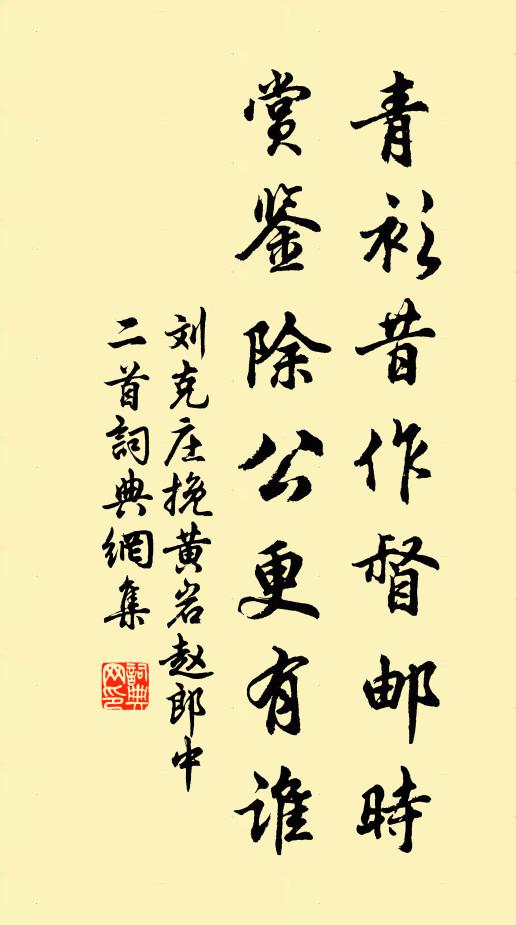 青衫昔作督邮時
赏鉴除公更有谁
刘克庄挽黄岩赵郎中
二首詞典網集
詞典网印